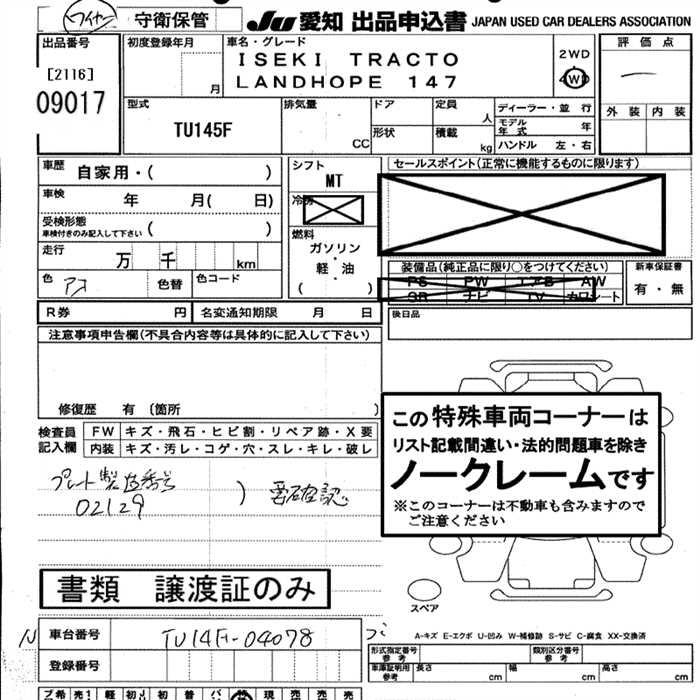 ワイヤー 守衛保管
JU 愛知 出品申込書 JAPAN USED CAR DEALERS ASSOCIATION
出品番号
[2116]
09017
初度登録年月
月
車名・グレード
ISEKI TRACTO
LANDHOPE 147
2WD
4WD
評価点
外装 内装
型式
TU145F
排気量
CC
ドア
形状
定員
人
積載
kg
ディーラー・並行
モデル年式 年
ハンドル 左・右
車歴 自家用・( )
車検 年 月( 日)
受検形態
車検付きのみ記入して下さい ( )
走行 万 千 km
色 アオ 色替
色コード
シフト
MT
冷房
燃料
ガソリン
・
軽・油
( )
セールスポイント(正常に機能するものに限ります)
装備品(純正品に限り○をつけてください)
PS PW エアB AW
SR ナビ TV カワシート
新車保証書
有・無
R券 円
名変通知期限 月 日
後日品
注意事項申告欄(不具合内容等は具体的に記入して下さい)
修復歴 有 (箇所 )
検査員記入欄
FW キズ・飛石・ヒビ割・リペア跡・X要
内装 キズ・汚レ・コゲ・穴・スレ・キレ・破レ
プレート製造番号
02129
) 要確認
この特殊車両コーナーは
リスト記載間違い・法的問題車を除き
ノークレームです
※このコーナーは不動車も含みますので
ご注意ください
書類 譲渡証のみ
スペア
車台番号 TU14F-04078
登録番号
A-キズ E-エクボ U-凹み W-補修跡 S-サビ C-腐食 XX-交換済
形式指定番号 参考
類別区分番号 参考
車庫証明用 参考
長さ cm
幅 cm
高さ cm